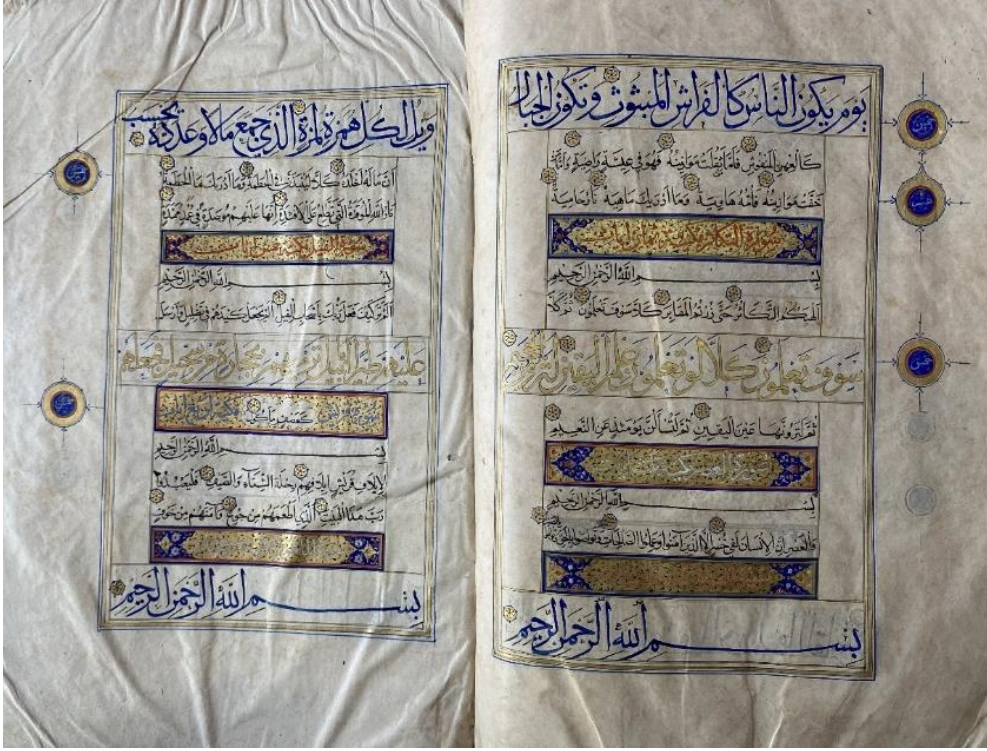 يوم يكون الناس كالفراش المبثوث وتكون الجبال
كالعهن المنفوش فأما من ثقلت موازينه فهو في عيشة راضية وأما من
خفت موازينه فأمه هاوية وما أدريك ماهيه نار حامية
سورة التكاثر مكية وهي ثمان آيات
بسم الله الرحمن الرحيم
ألهيكم التكاثر حتى زرتم المقابر كلا سوف تعلمون ثم كلا
سوف تعلمون كلا لو تعلمون علم اليقين لترون الجحيم
ثم لترونها عين اليقين ثم لتسئلن يومئذ عن النعيم
سورة العصر
بسم الله الرحمن الرحيم
والعصر إن الإنسان لفي خسر إلا الذين آمنوا وعملوا الصالحات وتواصوا بالحق وتواصوا بالصبر
بسم الله الرحمن الرحيم
خمس
عشر
خمس
ويل لكل همزة لمزة الذي جمع مالا وعدده يحسب
أن ماله أخلده كلا لينبذن في الحطمة وما أدريك ما الحطمة
نار الله الموقدة التي تطلع على الأفئدة إنها عليهم مؤصدة في عمد ممددة
سورة الفيل مكية خمس آيات
بسم الله الرحمن الرحيم
ألم تر كيف فعل ربك بأصحاب الفيل ألم يجعل كيدهم في تضليل وأرسل
عليهم طيرا أبابيل ترميهم بحجارة من سجيل فجعلهم
سورة قريش كعصف مأكول مكية أربع آيات
بسم الله الرحمن الرحيم
لإيلاف قريش إيلافهم رحلة الشتاء والصيف فليعبدوا
رب هذا البيت الذي أطعمهم من جوع وآمنهم من خوف
بسم الله الرحمن الرحيم